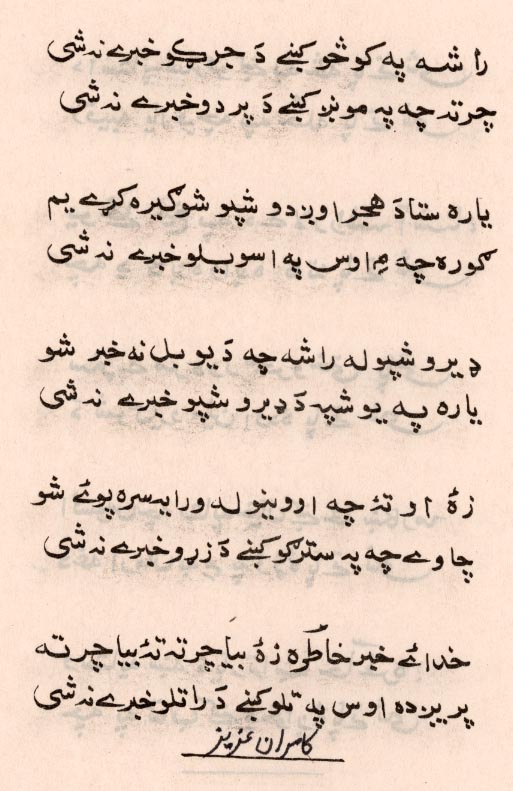 راشه په کوڅو کښے دَ جرګو خبرے نه شی
چرته چه په مونږ کښے دَ پردو خبرے نه شی
یاره ستا دَ هجر اوږدو شپو شوګیره کړے یم
ګوره چه مِ اوس په اسویلو خبرے نه شی
ډیرو شپو له راشه چه دَ یو بل نه خبر شو
یاره په یو شپه دَ ډیرو شپو خبرے نه شی
زۀ او تۀ چه اووینو له ورایه سره پوئے شو
چاوے چه په سترګو کښے دَ زړو خبرے نه شی
خدائے خبر خاطره زۀ بیا چرته تۀ بیا چرته
پریږده اوس په تلو کښے دَ راتلو خبرے نه شی
کامران عزیز